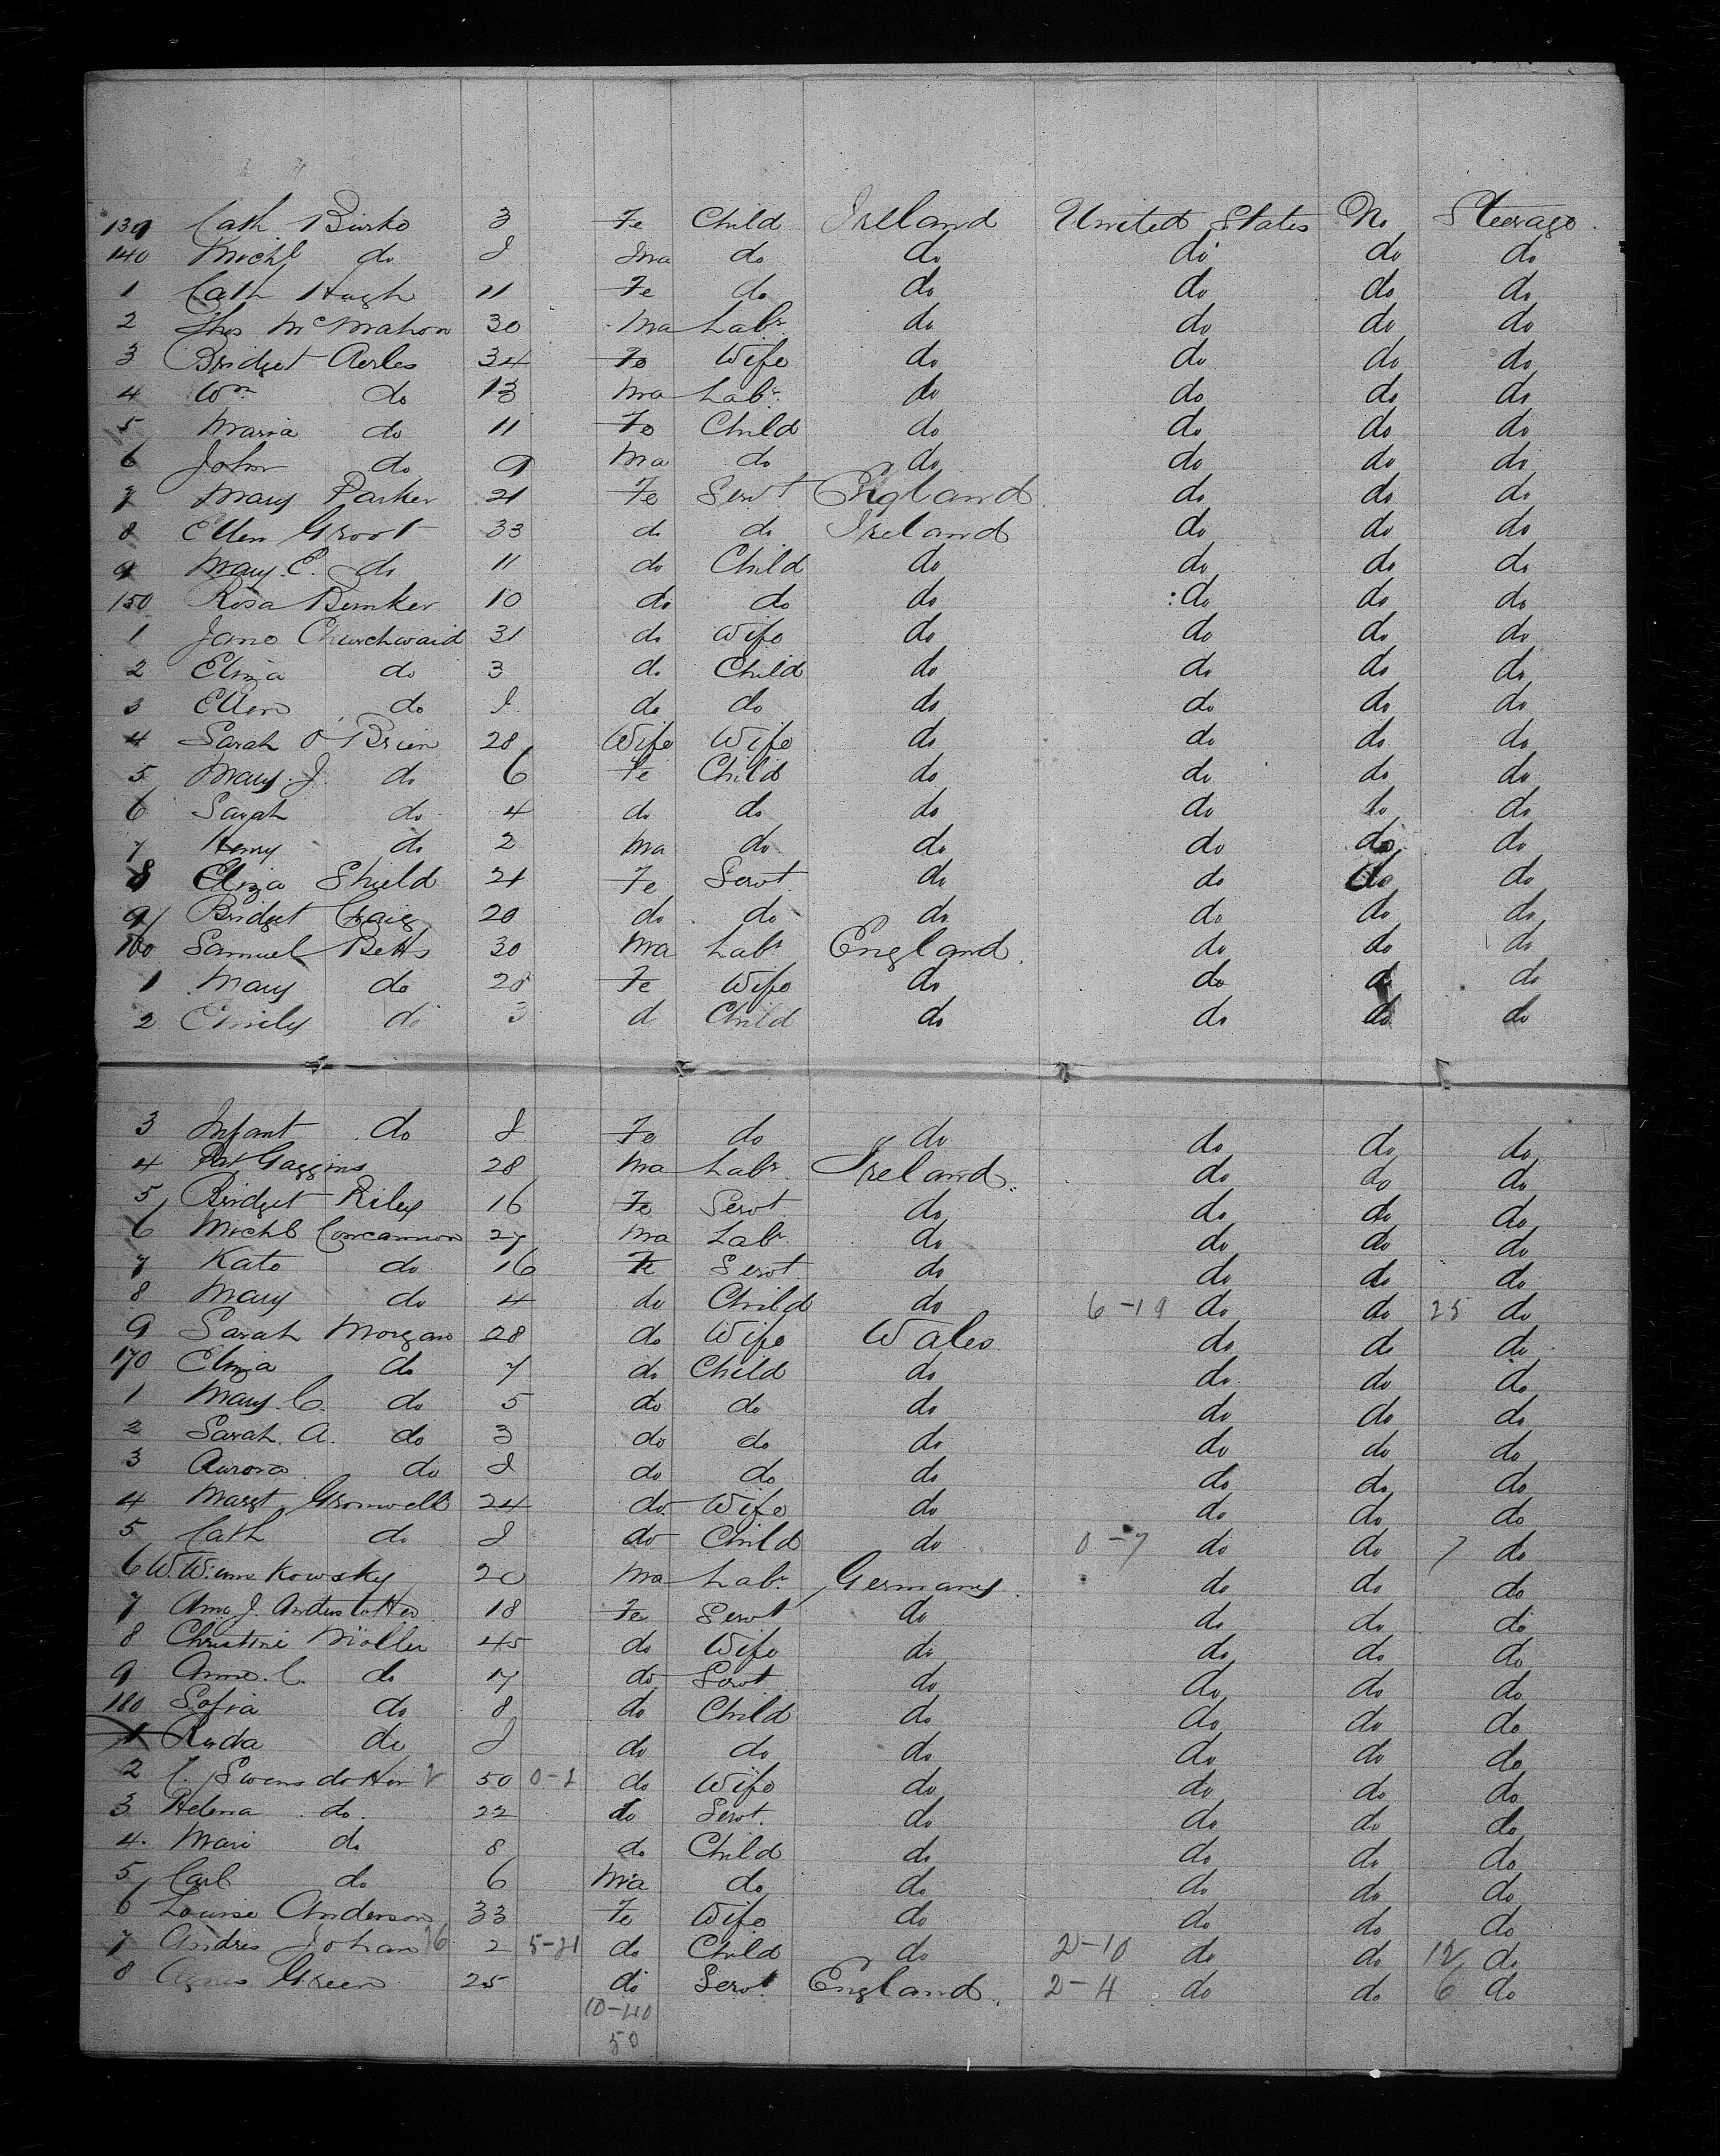 139 Cath Burke 3 Fe Child Ireland United States No Steerage.
140 Michl do I Ma do do do do do
1 Cath Hugh 11 Fe do do do do do
2 Thos McMahon 30 Ma Labr do do do do
3 Bridget Aerles 34 Fe Wife do do do do
4 Wm do 13 Ma Labr do do do do
5 Maria do 11 Fe Child do do do do
6 John do 9 Ma do do do do do
7 Mary Parker 21 Fe Servt England do do do
8 Ellen Groot 33 do do Ireland do do do
9 Mary. E. do 11 do Child do do do do
150 Rosa Bunker 10 do do do do do do
1 Jane Churchwaid 31 do Wife do do do do
2 Eliza do 3 do Child do do do do
3 Ellen do I do do do do do do
4 Sarah O'Brien 28 Wife Wife do do do do
5 Mary. J. do 6 Fe Child do do do do
6 Sarah do 4 do do do do do do
7 Henry do 2 Ma do do do do do
8 Eliza Shield 21 Fe Servt do do do do
9 Bridget Craig 20 do do do do do do
160 Samuel Betts 30 Ma Labr England. do do do
1 Mary do 28 Fe Wife do do do do
2 Emily do 3 d Child do do do do
3 Infant do I Fe do do do do do
4 Pat Gaggins 28 Ma Labr Ireland. do do do
5 Bridget Riley 16 Fe Servt do do do do
6 Michl Concannon 27 Ma Labr do do do do
7 Kate do 16 Fe Servt do do do do
8 Mary do 4 do Child do 6-19 do do 25 do
9 Sarah Morgan 28 do Wife Wales do do do
170 Eliza do 7 do Child do do do do
1 Mary. C. do 5 do do do do do do
2 Sarah. A. do 3 do do do do do do
3 Aurora do I do do do do do do
4 Margt Gromwell 24 do Wife do do do do
5 Cath do I do Child do 0-7 do do 7 do
6 W. 20 Ma Labr Germany. do do do
7 Ane J. 18 Fe Servt do do do do
8 Christine Möller 45 do Wife do do do do
9 Anne. C. do 17 do Servt do do do do
180 Sofia do 8 do Child do do do do
1 Ruda do I do do do do do do
2 C. Swensdotter 50 0-1 do Wife do do do do
3 Helena do. 22 do Servt. do do do do
4. Mari do 8 do Child do do do do
5 Carl do 6 Ma do do do do do
6 Louise Anderson 33 Fe Wife do do do do
7 Andres Johan 16 2 5-21 do Child do 2-10 do do 12 do
8 Agnes Green 25 do Servt England. 2-4 do do 6 do
10-40
50